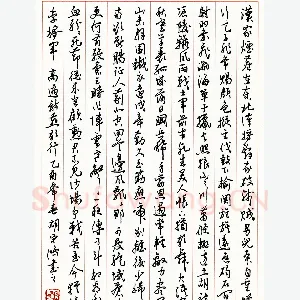 漢家煙塵在东北漢将辞家破残贼男児本自重横
行天子非常賜顔色摐金伐鼓下榆関旌旆逶迤碣石间
羽書飛瀚海单于獵火照狼山山川蕭條極邊土胡騎
憑陵雜風雨戰士軍前半死生美人帳下猶歌舞大漠窮
秋塞草衰孤城落日鬥兵稀身當恩遇常輕敵力盡関
山未解圍鐵衣遠戍辛勤久玉箸應啼別離後少婦城
南欲斷腸征人薊北空回首邊風飄飄那可度絕域蒼茫
更何有殺氣三時作陣雲寒聲一夜傳刁斗相看白刃
血紛紛死節從来豈顧勳君不見沙場爭戰苦至今猶憶
李將軍 高適燕歌行 乙酉年春 胡